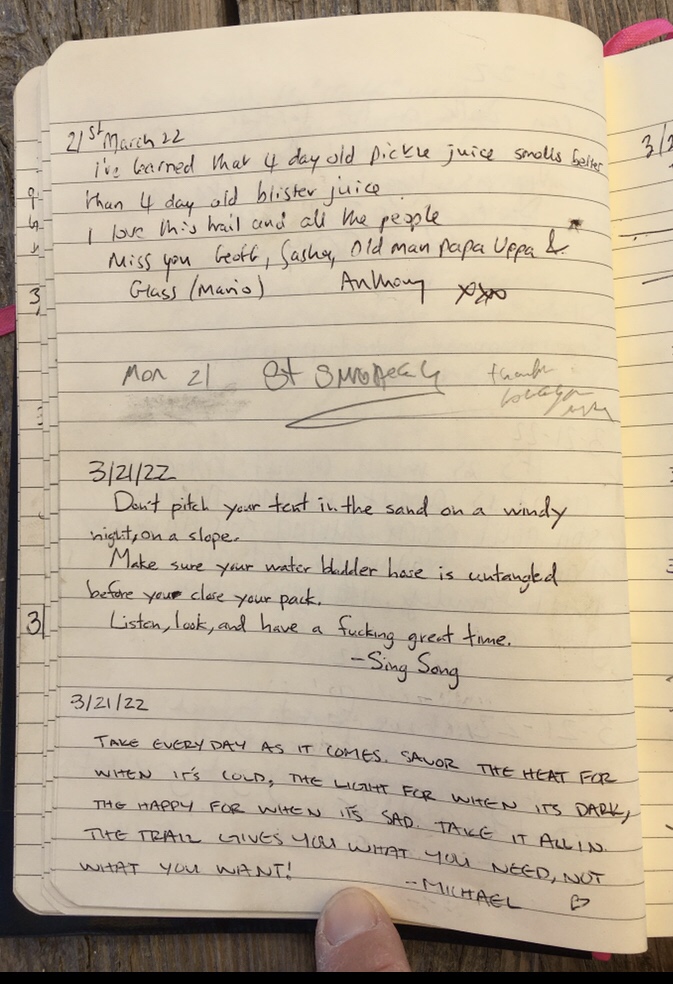 21st March 22
I've learned that 4 day old pickle juice smells better
than 4 day old blister juice
I love this trail and all the people
Miss you Geoff, Sasha, Old man Papa Uppa &
Glass (Mario) Anthony xxx
Mon 21 St thank
3/21/22
Don't pitch your tent in the sand on a windy
night, on a slope.
Make sure your water bladder hose is untangled
before your close your pack.
Listen, look, and have a fucking great time.
-Sing Song
3/21/22
TAKE EVERY DAY AS IT COMES. SAVOR THE HEAT FOR
WHEN IT'S COLD, THE LIGHT FOR WHEN ITS DARK,
THE HAPPY FOR WHEN ITS SAD. TAKE IT ALL IN.
THE TRAIL GIVES YOU WHAT YOU NEED, NOT
WHAT YOU WANT!
-MICHAEL ♡
3
3
3/2